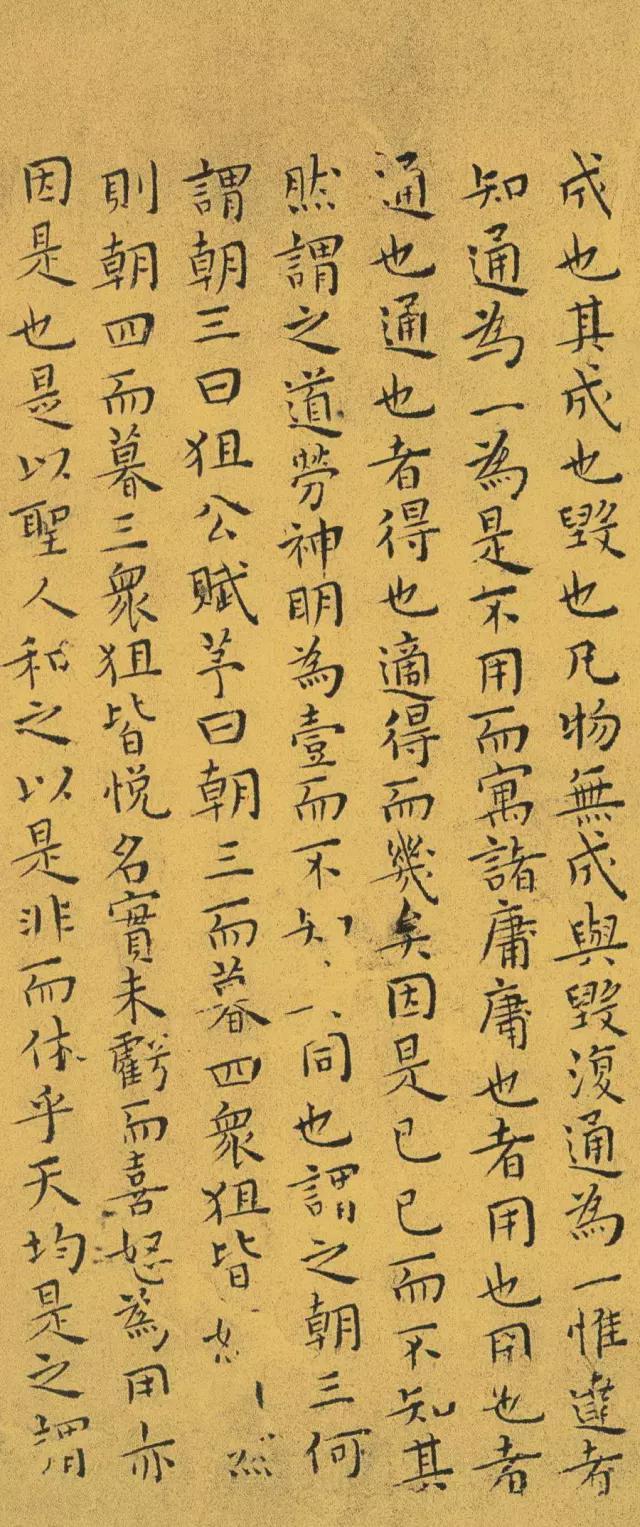 成也其成也毀也凡物無成與毀復通為一惟達者
知通為一為是不用而寓諸庸庸也者用也用也者
通也通也者得也適得而幾矣因是已已而不知其
然謂之道勞神明為壹而不知同也謂之朝三何
謂朝三曰狙公賦芧曰朝三而暮四衆狙皆
則朝四而暮三衆狙皆悅名實未虧而喜怒為用亦
因是也是以聖人和之以是非而休乎天均是之謂